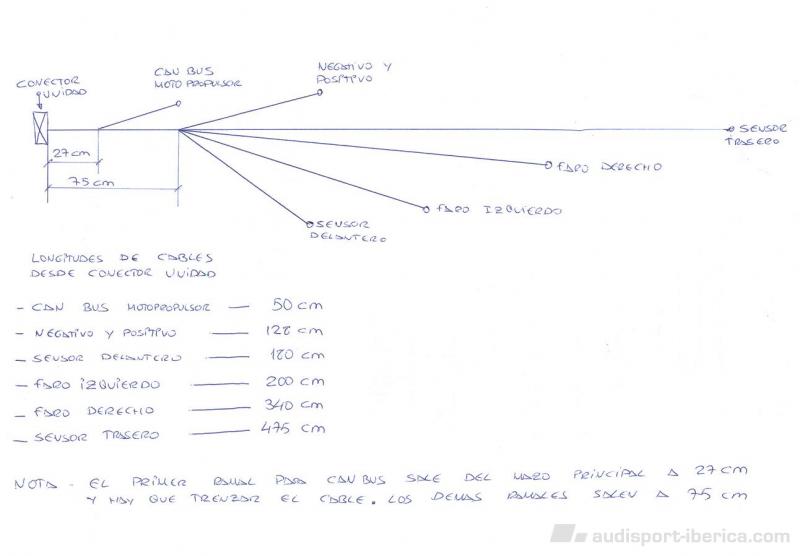 CONECTOR
UNIDAD
CAN BUS
MOTOPROPULSOR
NEGATIVO Y
POSITIVO
SENSOR
TRASERO
27 cm
75 cm
FARO DERECHO
FARO IZQUIERDO
SENSOR
DELANTERO
LONGITUDES DE CABLES
DESDE CONECTOR UNIDAD
- CAN BUS MOTOPROPULSOR — 50 cm
- NEGATIVO Y POSITIVO — 128 cm
- SENSOR DELANTERO — 180 cm
- FARO IZQUIERDO — 200 cm
- FARO DERECHO — 340 cm
- SENSOR TRASERO — 475 cm
NOTA - EL PRIMER RAMAL PARA CAN BUS SALE DEL MAZO PRINCIPAL A 27 cm
Y HAY QUE TRENZAR EL CABLE. LOS DEMAS RAMALES SALEN A 75 cm
audisport-iberica.com